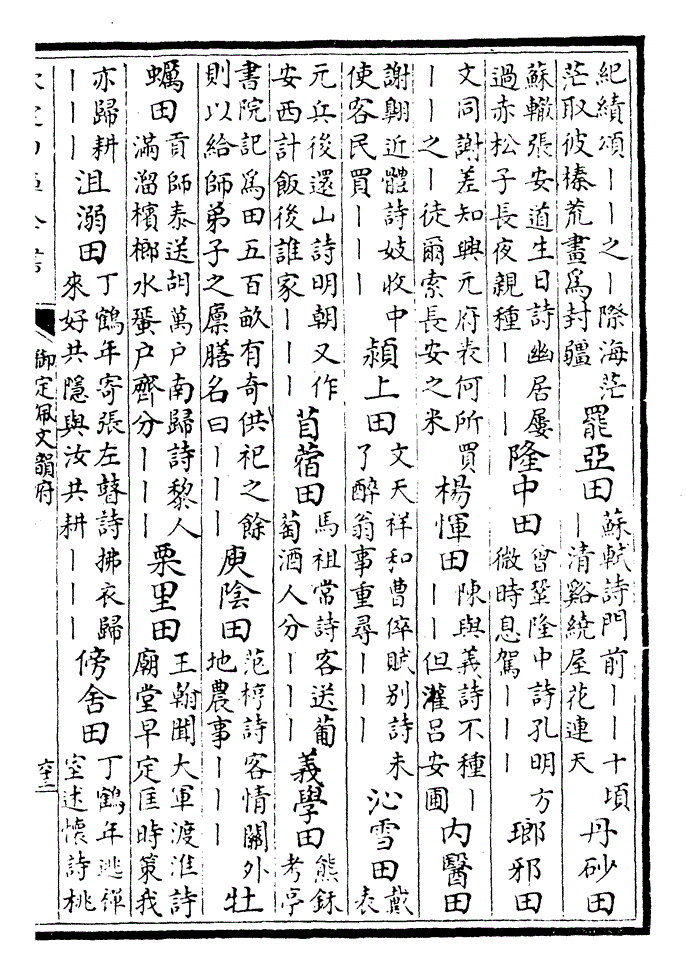 紀績頌——之—際海茫
茫取彼榛荒畫為封疆
罷亞田
蘇軾詩門前——十頃
—清谿繞屋花連天
丹砂田
蘇轍張安道生日詩幽居屢
過赤松子長夜親種———
隆中田
曾鞏隆中詩孔明方
微時息駕———
瑯邪田
文同謝差知興元府表何所買
——之—徒爾索長安之米
楊惲田
陳與義詩不種—
——但灌呂安圃
內醫田
謝翺近體詩妓收中
使客民買———
潁上田
文天祥和曹倅賦別詩未
了醉翁事重尋———
沁雪田
戴
表
元兵後還山詩明朝又作
安西計飯後誰家———
苜蓿田
馬祖常詩客送葡
萄酒人分———
義學田
熊鉌
考亭
書院記為田五百畝有奇供祀之餘
則以給師弟子之廩膳名曰———
庾陰田
范梈詩客情關外
地農事———
牡
蠣田
貢師泰送胡萬户南歸詩黎人
滿溜檳榔水蜑户齊分———
栗里田
王翰聞大軍渡淮詩
廟堂早定匡時策我
亦歸耕
———
沮溺田
丁鶴年寄張左瞽詩拂衣歸
來好共隱與汝共耕———
傍舍田
丁鶴年逃禪
室述懷詩桃
御定佩文韻府
六十二